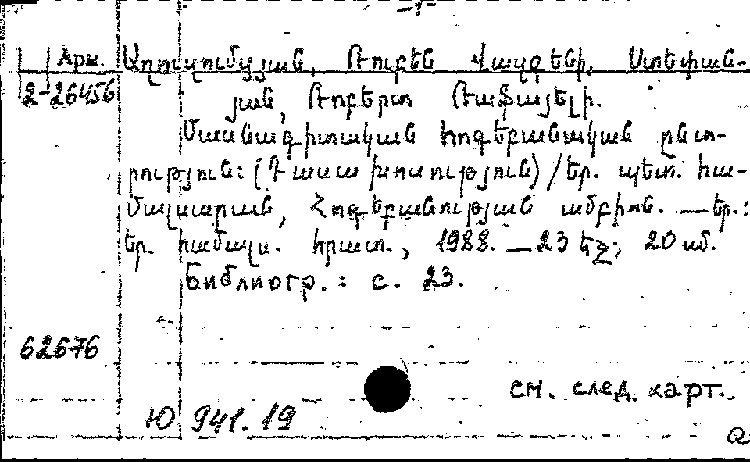 -1-
Арм. Աղուզումցյան, Ռուբեն Վազգենի, Ստեփան-
2-26456 յան, Ռոբերտ Ռաֆայելի.
Մասնագիտական հոգեբանական ընտ-
րություն: (Դասախոսություն) / Եր. պետ. հա-
մալսարան, Հոգեբանության ամբիոն. — Եր.:
Եր. համալս. հրատ., 1988. — 23 եջ; 20 սմ.
Библиогр.: с. 23.
62676
см. след. карт.
Ю 941.19